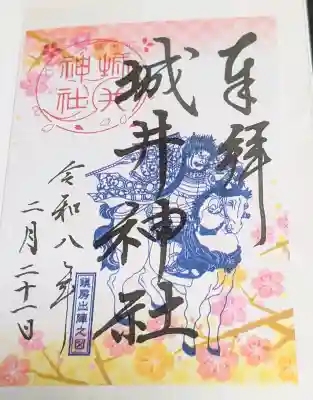 奉拝
城井神社
城井
神社
令和八年
二月二十一日
鎮房出陣之図